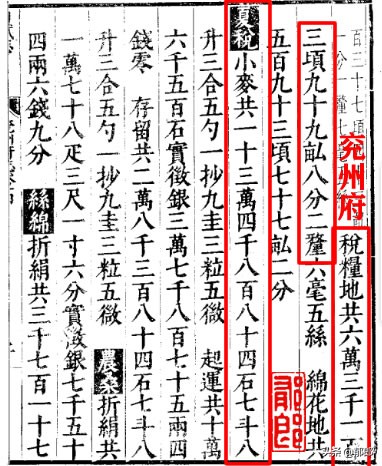 兗州府
稅糧地共六萬三千一
三頃九十九畝八分二釐六毫五絲 綿花地共
五百九十三頃七十七畝二分
夏稅小麥共一十三萬四千八百八十四石七斗八
升三合五勺一抄九圭三粒五微 起運共十萬
六千五百石實徵銀三萬七千八百七十五兩四
錢零 存留共二萬八千三百八十四石七斗八
升三合五勺一抄九圭三粒五微 農桑折絹共
一萬七十八疋三尺一寸六分實徵銀七千五十
四兩六錢九分 絲綿折絹共三千七百一十七